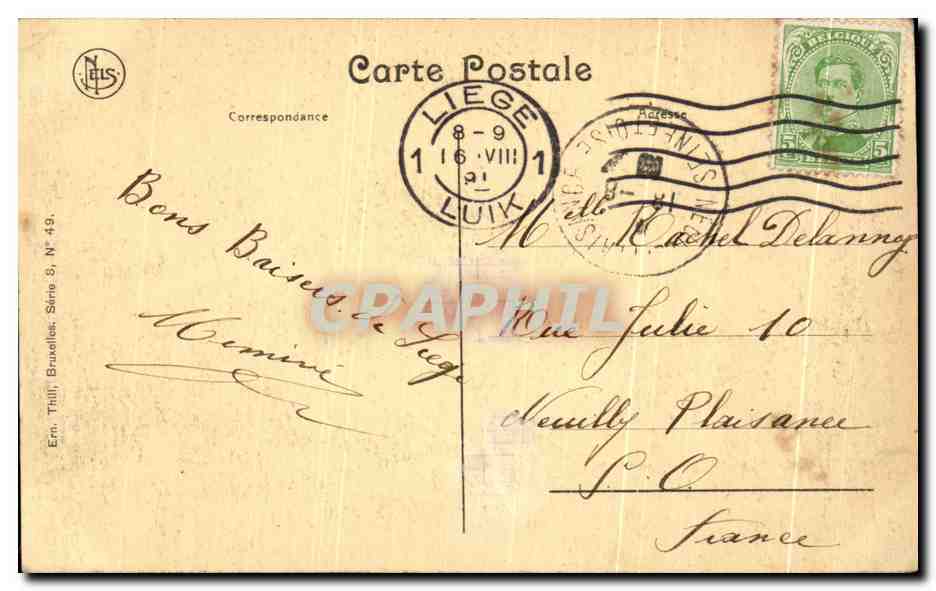 NELS
Carte Postale
Correspondance
Adresse
BELGIQUE
5 5
LIEGE
8-9
1 16 VIII 1
LUIK
SEINE ET OISE
Bons Baisers de Liege
Mimine
Melle Rachel Delannoy
Rue Julie 10
Neuilly Plaisance
S. O.
France
Ern. Thill, Bruxelles, Série 8, N° 49.
CPAPHIL